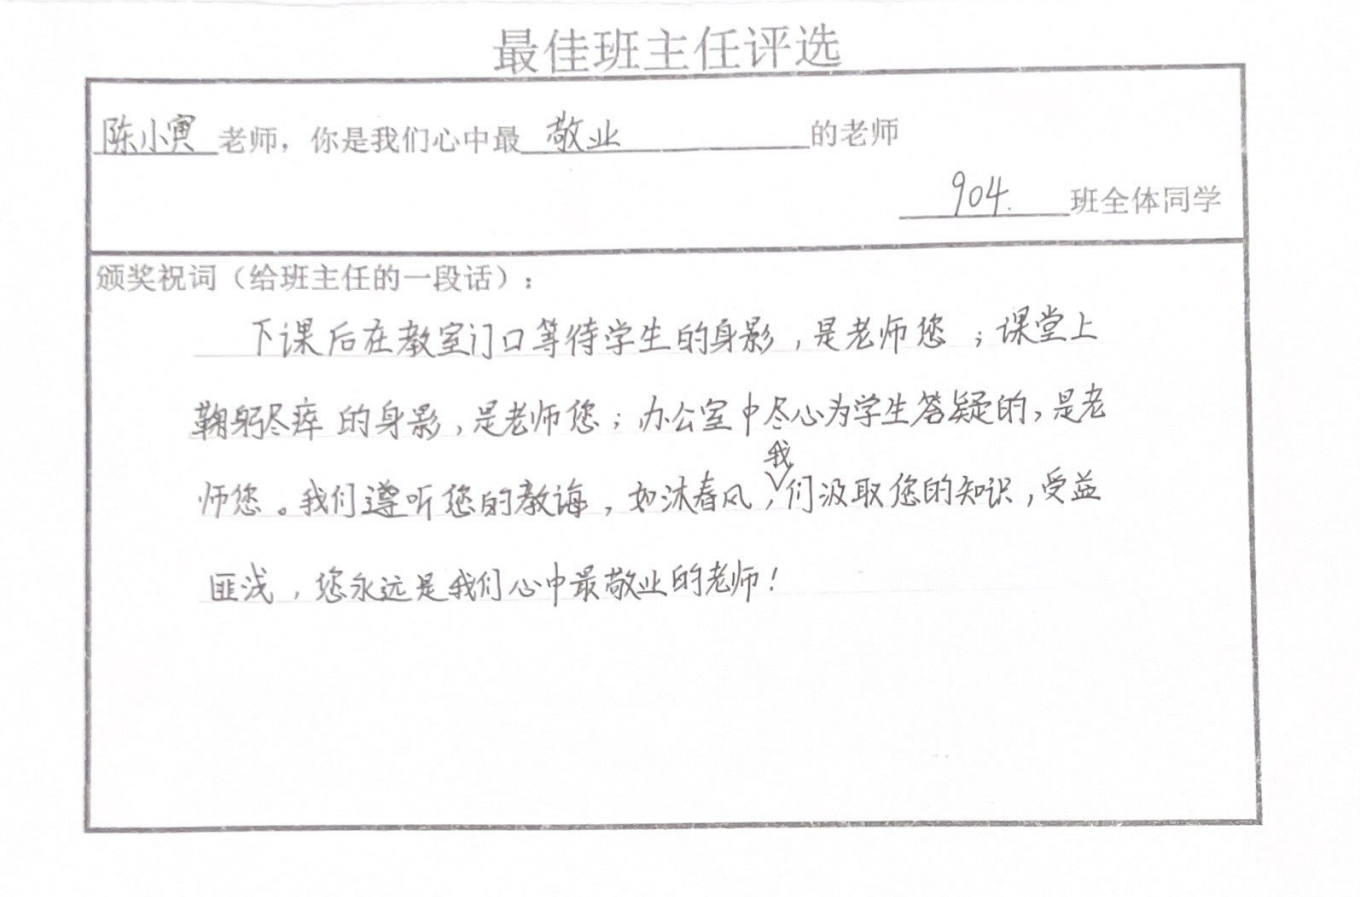 最佳班主任评选
陈小寅老师，你是我们心中最敬业的老师
904.班全体同学
颁奖祝词（给班主任的一段话）：
下课后在教室门口等待学生的身影，是老师您；课堂上
鞠躬尽瘁的身影，是老师您；办公室中尽心为学生答疑的，是老
师您。我们遵听您的教诲，如沐春风，我们汲取您的知识，受益
匪浅，您永远是我们心中最敬业的老师！